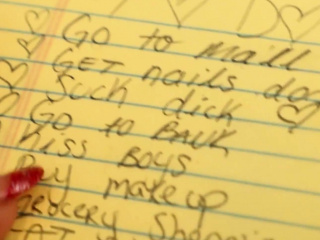 Go to mall
GET nails don
Suck dick
Go to BANK
Kiss Boys
Buy makeup
grocery Shoppi
EAT